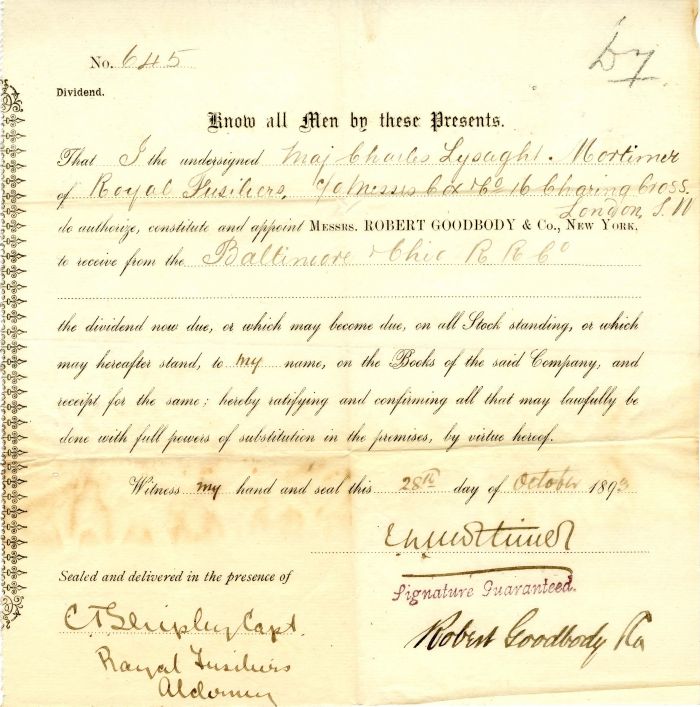 No. 645
Dividend.
Know all Men by these Presents.
That I the undersigned Maj Charles Lysaght Mortimer
of Royal Fusiliers, c/o Messrs Cox & Co 16 Charing Cross
London, S.W
do authorize, constitute and appoint Messrs. ROBERT GOODBODY & Co., New York,
to receive from the Baltimore & Ohio R R Co
the dividend now due, or which may become due, on all Stock standing, or which
may hereafter stand, to my name, on the Books of the said Company, and
receipt for the same; hereby ratifying and confirming all that may lawfully be
done with full powers of substitution in the premises, by virtue hereof.
Witness my hand and seal this 28th day of October 1893
Sealed and delivered in the presence of
Signature Guaranteed.
Robert Goodbody & Co
C T Shipley Capt.
Royal Fusiliers
Alderney